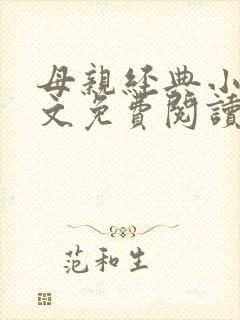 母親經典小
文免費閱讀
范和生